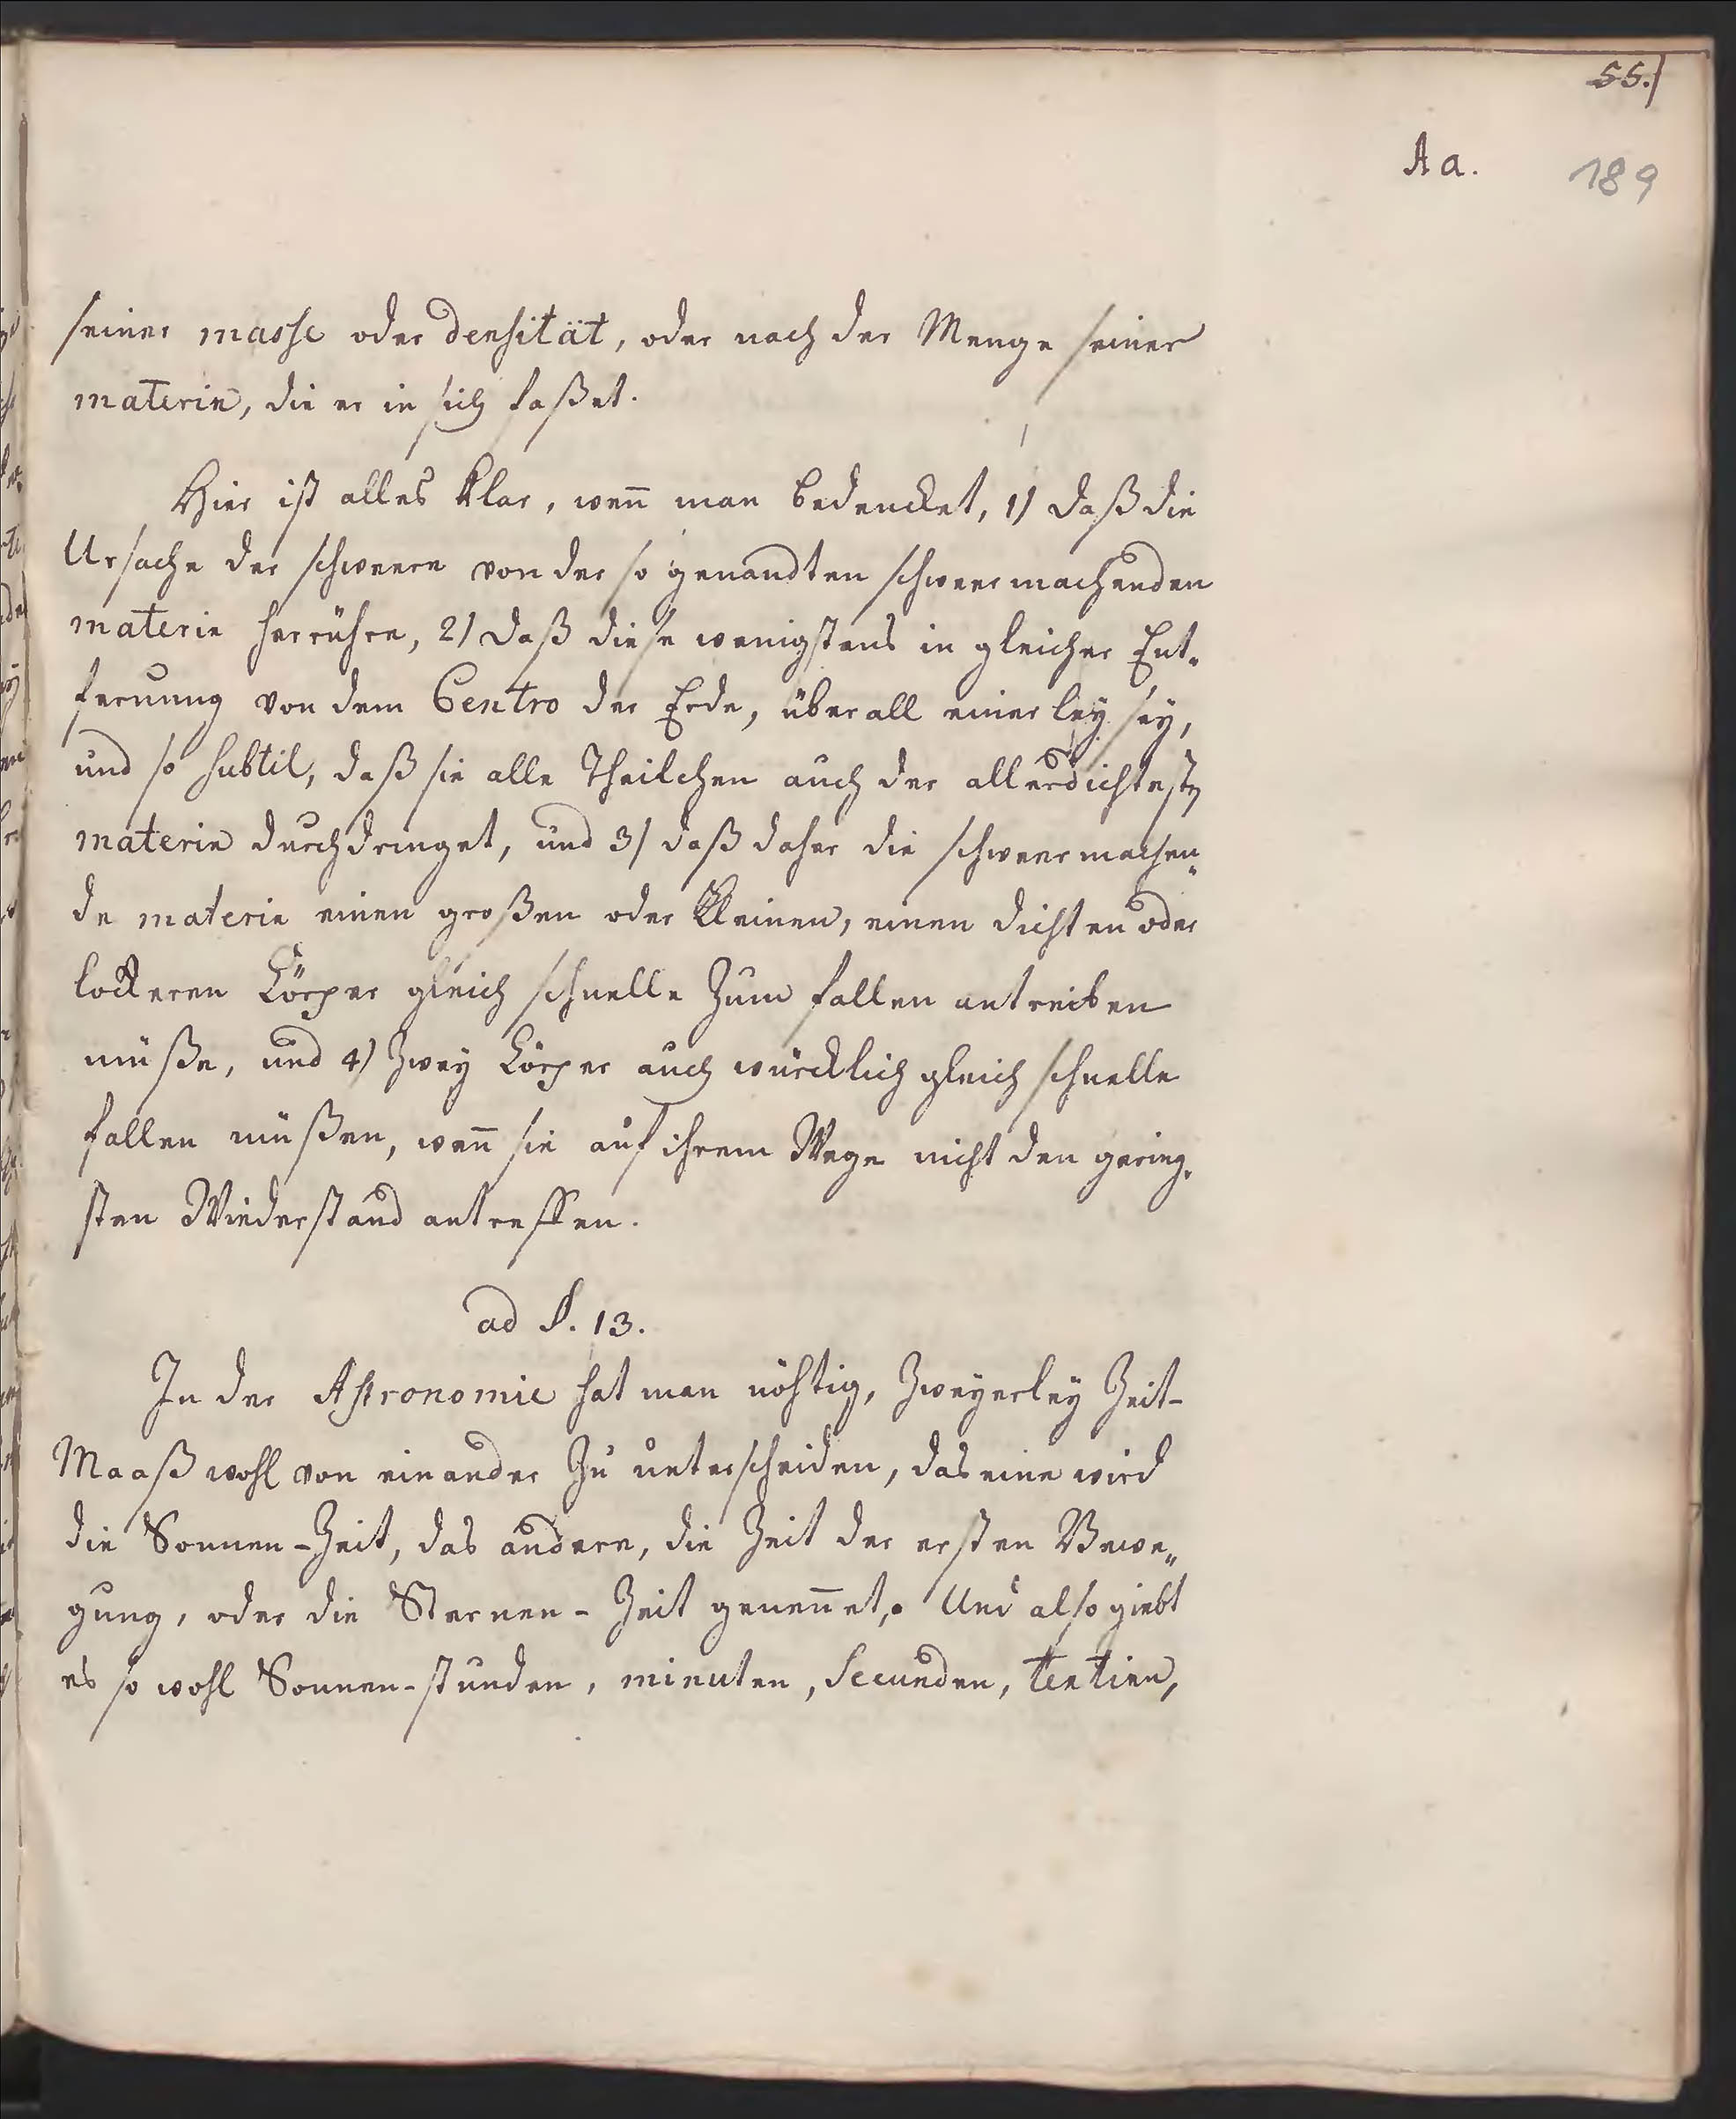 55.)
Aa.
189
seiner masse oder densität, oder nach der Menge seiner
materie, die er in sich faßet.
Hier ist alles klar, wen̅ man bedencket, 1) daß die
Ursache der schweere von der so genandten schweermachenden
materie herrühre, 2) daß diese wenigstens in gleicher Ent-
fernung von dem Centro der Erde, überall einerley sey,
und so subtil, daß sie alle Theilchen auch der allerdichtesten
materie durchdringet, und 3) daß daher die schweermachen-
de materie einen großen oder kleinen, einen dichten oder
lockeren Körper gleich schnelle zum fallen antreiben
müße, und 4) zwey Körper auch würcklich gleich schnelle
fallen müßen, wen̅ sie auf ihrem Wege nicht den gering-
sten Wiederstand antreffen.
ad §. 13.
In der Astronomie hat man nöhtig, zweyerley Zeit-
Maaß wohl von einander zu unterscheiden, das eine wird
die Sonnen-Zeit, das andere, die Zeit der ersten Bewe-
gung, oder die Sternen-Zeit genen̅et,. Und also giebt
es so wohl Sonnen-stunden, minuten, Secunden, tertien,